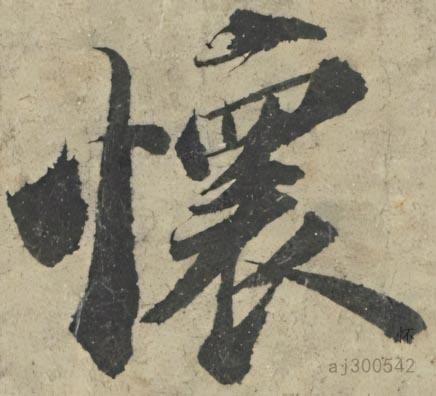 懷
怀
aj300542